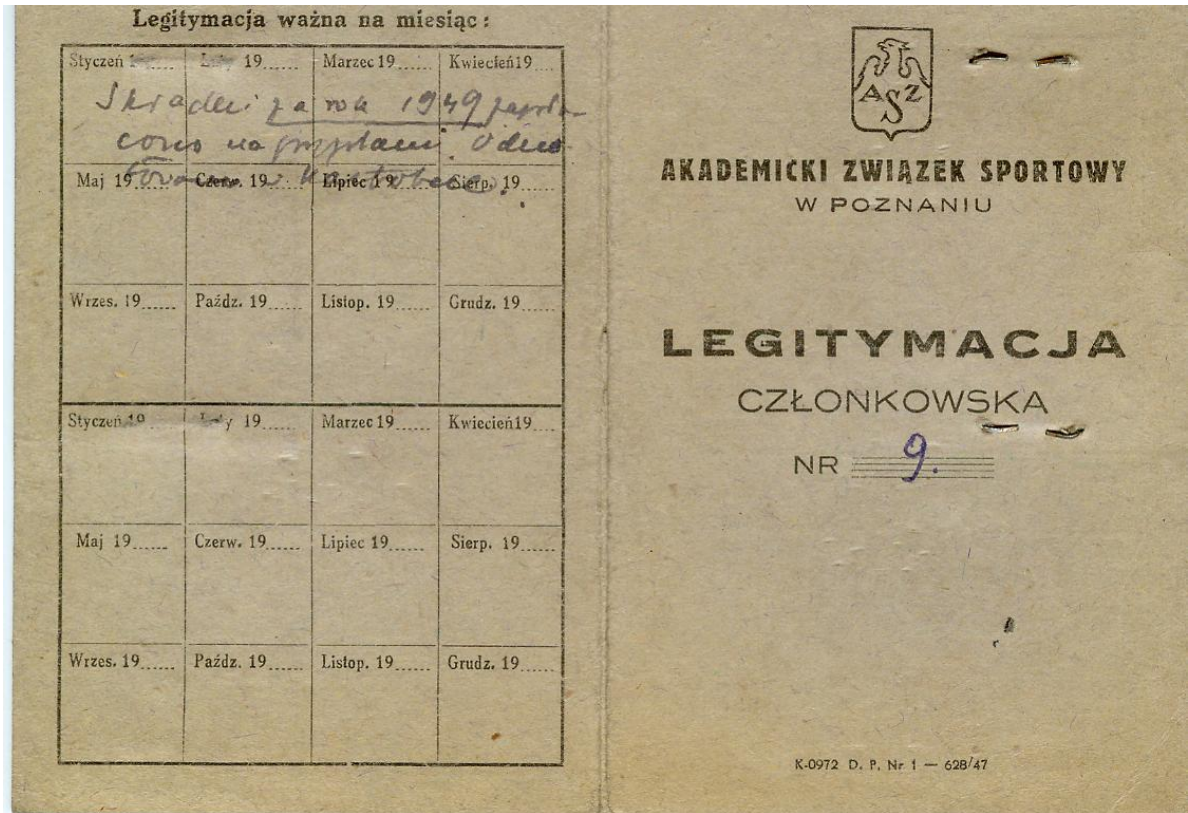 Legitymacja ważna na miesiąc:
Styczeń 19...... Luty 19...... Marzec 19...... Kwiecień 19......
Składki za rok 1949 zapła-
cono
Maj 19...... Czerw. 19...... Lipiec 19...... Sierp. 19......
Wrzes. 19...... Paźdz. 19...... Listop. 19...... Grudz. 19......
Styczeń 19...... Luty 19...... Marzec 19...... Kwiecień 19......
Maj 19...... Czerw. 19...... Lipiec 19...... Sierp. 19......
Wrzes. 19...... Paźdz. 19...... Listop. 19...... Grudz. 19......
AZS
AKADEMICKI ZWIĄZEK SPORTOWY
W POZNANIU
LEGITYMACJA
CZŁONKOWSKA
NR 9.
K-0972 D. P. Nr 1 — 628/47